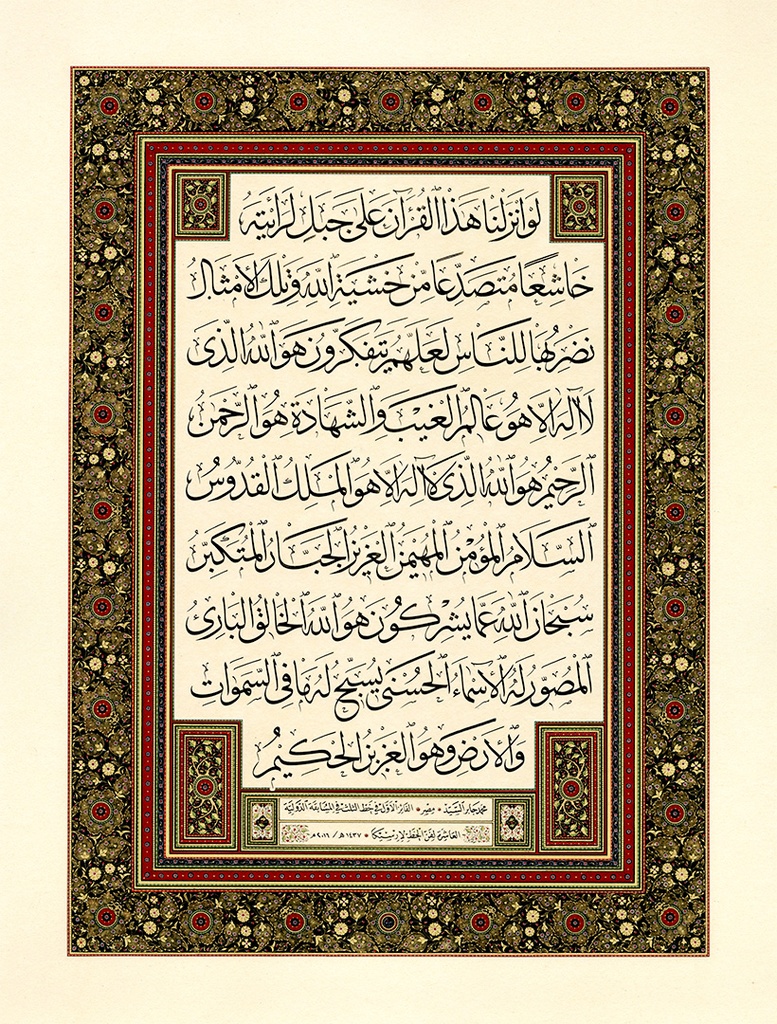 لَوْ أَنْزَلْنَا هَذَا الْقُرْآنَ عَلَى جَبَلٍ لَرَأَيْتَهُ
خَاشِعًا مُتَصَدِّعًا مِنْ خَشْيَةِ اللَّهِ وَتِلْكَ الْأَمْثَالُ
نَضْرِبُهَا لِلنَّاسِ لَعَلَّهُمْ يَتَفَكَّرُونَ هُوَ اللَّهُ الَّذِى
لَا إِلَهَ إِلَّا هُوَ عَالِمُ الْغَيْبِ وَالشَّهَادَةِ هُوَ الرَّحْمَنُ
الرَّحِيمُ هُوَ اللَّهُ الَّذِى لَا إِلَهَ إِلَّا هُوَ الْمَلِكُ الْقُدُّوسُ
السَّلَامُ الْمُؤْمِنُ الْمُهَيْمِنُ الْعَزِيزُ الْجَبَّارُ الْمُتَكَبِّرُ
سُبْحَانَ اللَّهِ عَمَّا يُشْرِكُونَ هُوَ اللَّهُ الْخَالِقُ الْبَارِئُ
الْمُصَوِّرُ لَهُ الْأَسْمَاءُ الْحُسْنَى يُسَبِّحُ لَهُ مَا فِى السَّمَوَاتِ
وَالْأَرْضِ وَهُوَ الْعَزِيزُ الْحَكِيمُ
محمد جابر السيد • مصر • الفائز الأول في خط الثلث في المسابقة الدولية
العاشرة لفن الخط لإرسيكا • ١٤٣٧ هـ / ٢٠١٦ م